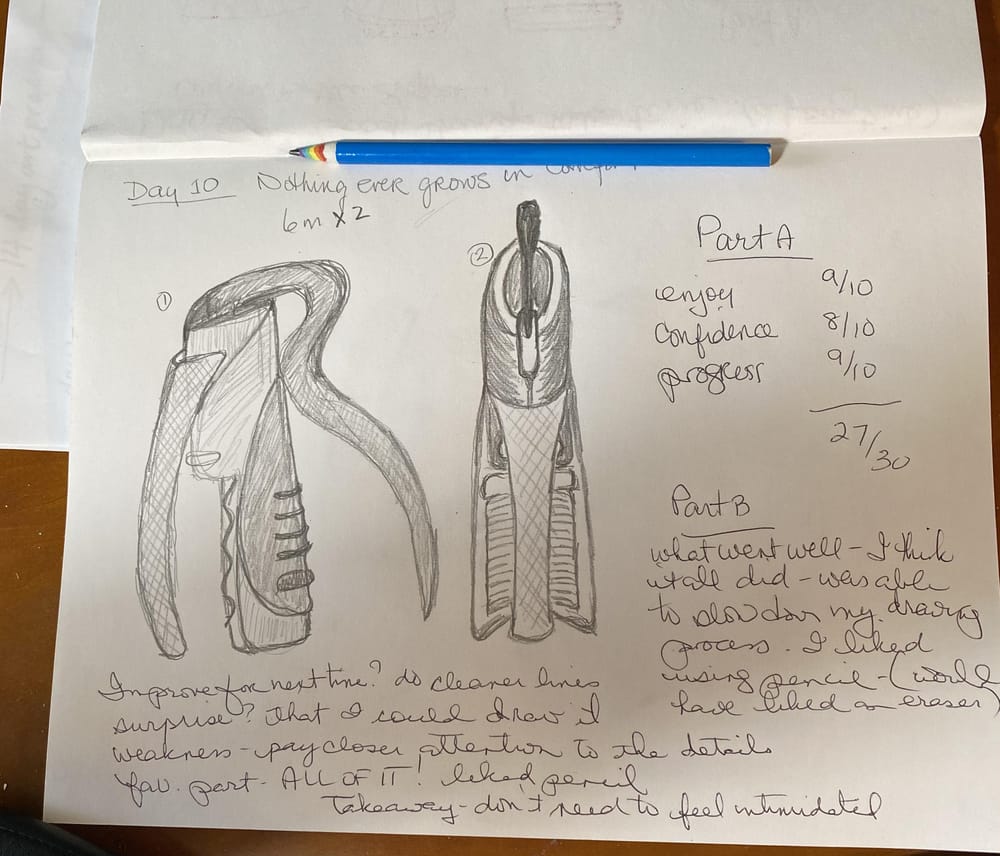 Day 10 Nothing ever grows in
6m x 2
①
②
Part A
enjoy 9/10
confidence 8/10
progress 9/10
27/30
Part B
what went well - I think
it all did - was able
to slow down my drawing
process. I liked
using pencil - (would
have liked an eraser)
Improve for next time? do cleaner lines
surprise? that I could draw it
weakness - pay closer attention to the details
fav. part - ALL OF IT! liked pencil
Takeaway - don't need to feel intimidated